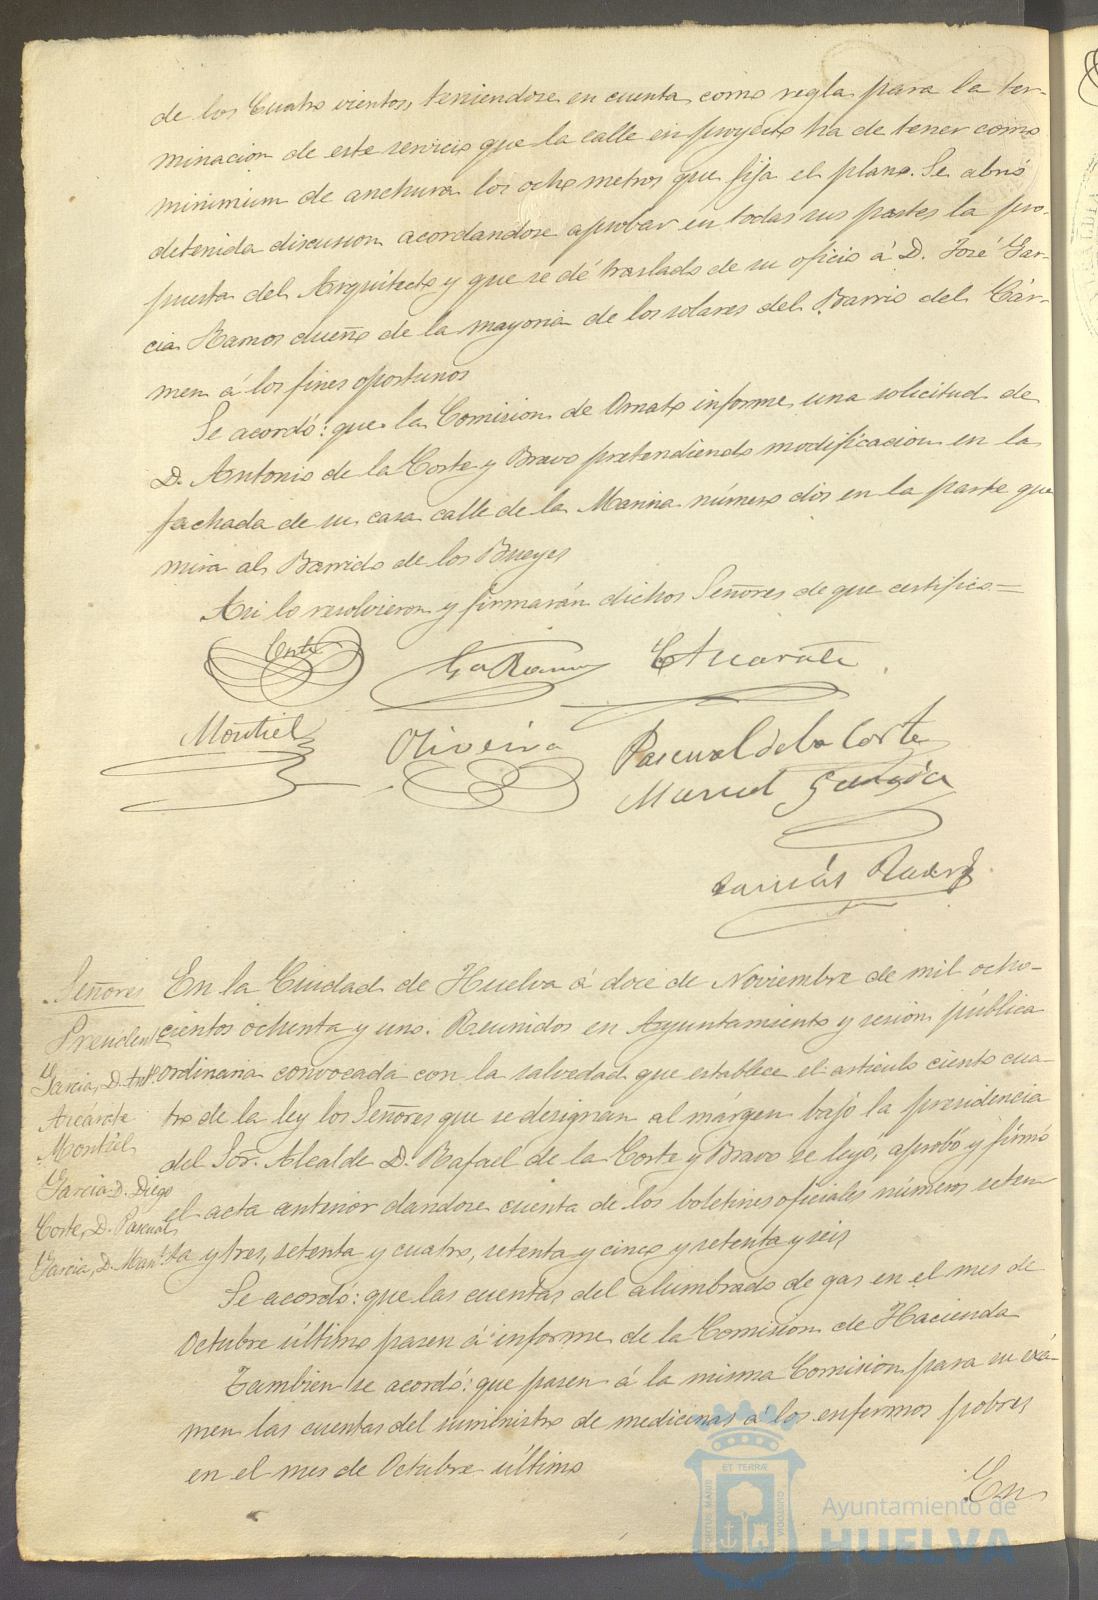 de los Cuatro vientos, teniendose en cuenta como regla para la ter-
minacion de este servicio que la calle en proyecto ha de tener como
minimum de anchura los ocho metros que fija el plano. Se abrió
detenida discusion acordandose aprobar en todas sus partes la pro-
puesta del Arquitecto y que se dé traslado de su oficio á D. José Gar-
cia Ramos dueño de la mayoria de los solares del Barrio del Cár-
men á los fines oportunos
Se acordó: que la Comision de Ornato informe una solicitud de
D. Antonio de la Corte y Bravo pretendiendo modificacion en la
fachada de su casa calle de la Marina número dos en la parte que
mira al Barrido de los Bueyes
Asi lo resolvieron y firmarán dichos Señores de que certifico =
Corte
Ga Ramos
Azcarate
Montiel
Oliveira
Pascual de la Corte
Manuel Garcia
Señores
Presidente
Garcia, D. Ant.
Azcárate
Montiel
Garcia D. Diego
Corte, D. Pascual
Garcia, D. Man.
En la Ciudad de Huelva á doce de Noviembre de mil ocho-
cientos ochenta y uno. Reunidos en Ayuntamiento y sesion pública
ordinaria convocada con la salvedad que establece el articulo ciento cua-
tro de la ley los Señores que se designan al márgen bajo la presidencia
del Sor. Alcalde D. Rafael de la Corte y Bravo se leyó, aprobó y firmó
el acta anterior dandose cuenta de los boletines oficiales números seten-
ta y tres, setenta y cuatro, setenta y cinco y setenta y seis
Se acordó: que las cuentas del alumbrado de gas en el mes de
Octubre último pasen á informe de la Comision de Hacienda
Tambien se acordó: que pasen á la misma Comision para su exá-
men las cuentas del suministro de medicinas á los enfermos pobres
en el mes de Octubre último
En
ET TERRÆ
PORTUS MARIS
CUSTODIA
Ayuntamiento de
HUELVA